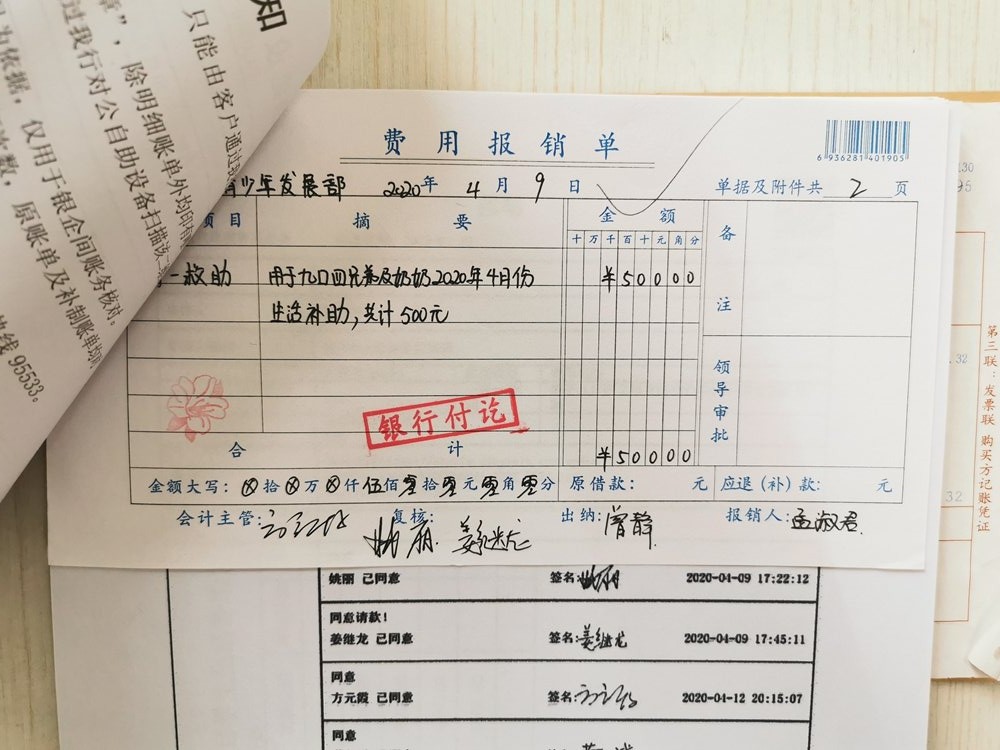 知
只能由客户通过
章”，除明细账单外均印有
过我行对公自助设备扫描该
为依据，仅用于银企间账务核对。
原账单及补制账单均
热线 95533。
费用报销单
6 936281 401905
青少年发展部 2020年 4月 9日 单据及附件共 2 页
项目 摘要 金额 备注
十万千百十元角分
一救助 用于九口四兄弟及奶奶2020年4月份 ¥50000
生活补助,共计500元
领导审批
银行付讫
合计 ¥50000
金额大写: ⊗拾⊗万⊗仟伍佰零拾零元零角零分 原借款: 元 应退(补)款: 元
会计主管: 方元霞 复核: 姚丽 姜继龙 出纳: 曾静 报销人: 孟淑君
姚丽 已同意 签名: 姚丽 2020-04-09 17:22:12
同意请款!
姜继龙 已同意 签名: 姜继龙 2020-04-09 17:45:11
同意
方元霞 已同意 签名: 方元霞 2020-04-12 20:15:07
同意
签名:
第三联：发票联 购买方记账凭证
130
95
.32
32